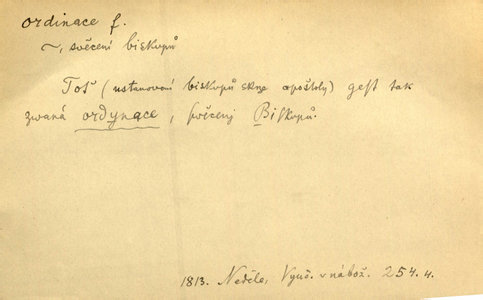 ordinace f.
~, svěcení biskupů
Toš (ustanovení biskupů skrze apoštoly) gest tak
zwaná ordynace, swěcenj Biskupů.
1813. Neděle, Vyuč. v nábož. 254. 4.